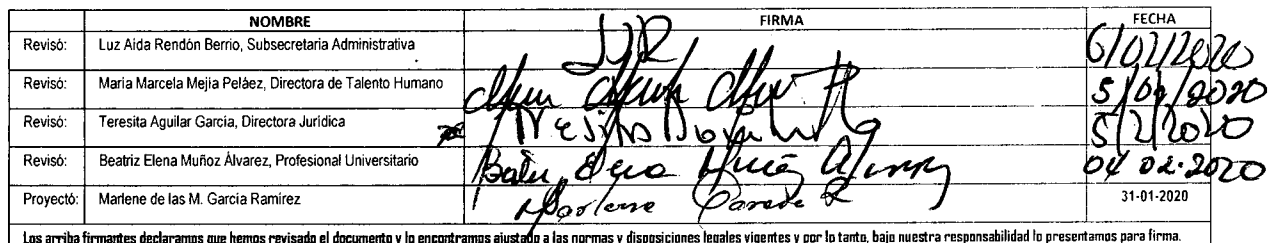 NOMBRE FIRMA FECHA
Revisó: Luz Aida Rendón Berrio, Subsecretaria Administrativa 6/02/2020
Revisó: Maria Marcela Mejia Peláez, Directora de Talento Humano 5/02/2020
Revisó: Teresita Aguilar García, Directora Jurídica 5/2/2020
Revisó: Beatriz Elena Muñoz Álvarez, Profesional Universitario 04 02-2020
Proyectó: Marlene de las M. García Ramírez Marlene 31-01-2020
Los arriba firmantes declaramos que hemos revisado el documento y lo encontramos ajustado a las normas y disposiciones legales vigentes y por lo tanto, bajo nuestra responsabilidad lo presentamos para firma.